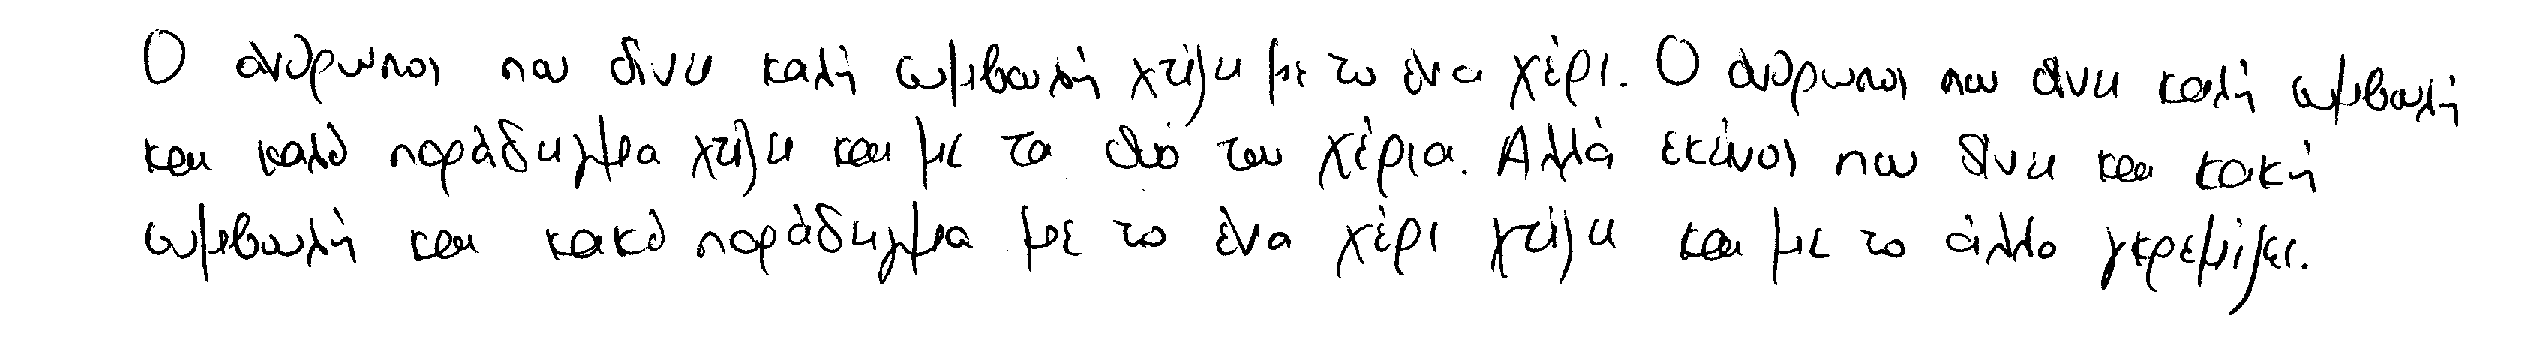 Ο άνθρωπος που δίνει καλή συμβουλή χτίζει με το ένα χέρι. Ο άνθρωπος που δίνει καλή συμβουλή
και καλό παράδειγμα χτίζει και με τα δυο του χέρια. Αλλά εκείνος που δίνει και κακή
συμβουλή και κακό παράδειγμα με το ένα χέρι χτίζει και με το άλλο γκρεμίζει.